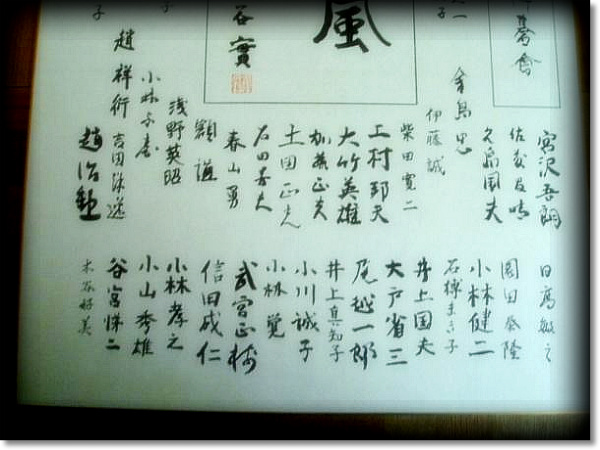 春会
風
谷實
宮沢吾朗
久島国夫
金島忠
伊藤誠
柴田寛二
上村邦夫
大竹英雄
加藤正夫
土田正光
石田芳夫
春山勇
浅野英昭
小林千寿
趙祥衍
趙治勲
日高敏之
園田泰隆
小林健二
石榑まき子
井上国夫
大戸省三
尾越一郎
井上真知子
小川誠子
小林覚
武宮正樹
信田成仁
小林孝之
小山秀雄
谷宮悌二
木谷好美